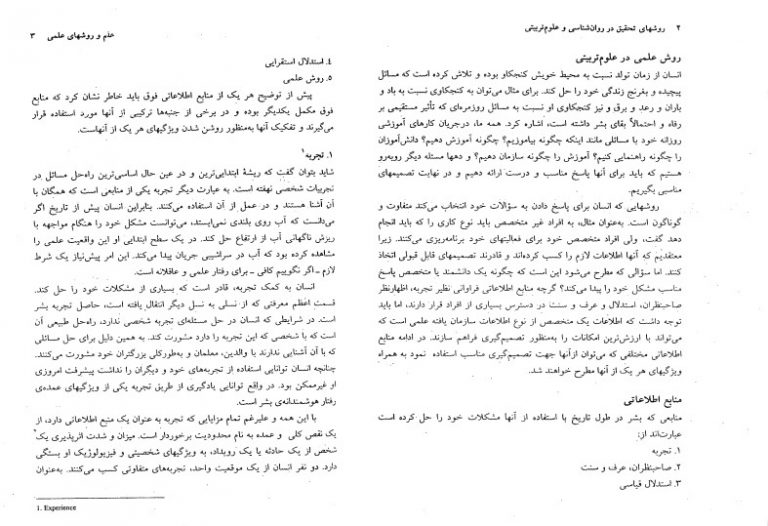 ۲ روشهای تحقیق در روان‌شناسی و علوم‌تربیتی
روش علمی در علوم‌تربیتی
انسان از زمان تولد نسبت به محیط خویش کنجکاو بوده و تلاش کرده است که مسائل
پیچیده و بغرنج زندگی خود را حل کند. برای مثال می‌توان به کنجکاوی نسبت به باد و
باران و رعد و برق و نیز کنجکاوی او نسبت به مسائل روزمره‌ای که تأثیر مستقیمی بر
رفاه و احتمالاً بقای بشر داشته است، اشاره کرد. همه ما، درجریان کارهای آموزشی
روزانه خود با مسائلی مانند اینکه چگونه بیاموزیم؟ چگونه آموزش دهیم؟ دانش‌آموزان
را چگونه راهنمایی کنیم؟ آموزش را چگونه سازمان دهیم؟ و دهها مسئله دیگر روبه‌رو
هستیم که باید برای آنها پاسخ مناسب و درست ارائه دهیم و در نهایت تصمیمهای
مناسبی بگیریم.
روشهایی که انسان برای پاسخ دادن به سؤالات خود انتخاب می‌کند متفاوت و
گوناگون است. به‌عنوان مثال، به افراد غیر متخصص باید نوع کاری را که باید انجام
دهد گفت، ولی افراد متخصص خود برای فعالیتهای خود برنامه‌ریزی می‌کنند. زیرا
معتقدیم که آنها اطلاعات لازم را کسب کرده‌اند و قادرند تصمیمهای قابل قبولی اتخاذ
کنند. اما سؤالی که مطرح می‌شود این است که چگونه یک دانشمند یا متخصص پاسخ
مناسب مشکل خود را پیدا می‌کند؟ گرچه منابع اطلاعاتی فراوانی نظیر تجربه، اظهارنظر
صاحبنظران، استدلال و عرف و سنت در دسترس بسیاری از افراد قرار دارند، اما باید
توجه داشت که اطلاعات یک متخصص از نوع اطلاعات سازمان یافته علمی است که
می‌تواند با ارزش‌ترین امکانات را به‌منظور تصمیم‌گیری فراهم سازند. در ادامه منابع
اطلاعاتی مختلفی که می‌توان ازآنها جهت تصمیم‌گیری مناسب استفاده نمود به همراه
ویژگیهای هر یک از آنها مطرح خواهند شد.
منابع اطلاعاتی
منابعی که بشر در طول تاریخ با استفاده از آنها مشکلات خود را حل کرده است
عبارت‌اند از:
۱. تجربه
۲. صاحبنظران، عرف و سنت
۳. استدلال قیاسی
علم و روشهای علمی ۳
۴. استدلال استقرایی
۵. روش علمی
پیش از توضیح هر یک از منابع اطلاعاتی فوق باید خاطر نشان کرد که منابع
فوق مکمل یکدیگر بوده و در برخی از جنبه‌ها ترکیبی از آنها مورد استفاده قرار
می‌گیرند و تفکیک آنها به‌منظور روشن شدن ویژگیهای هر یک از آنهاست.
۱. تجربه¹
شاید بتوان گفت که ریشهٔ ابتدایی‌ترین و در عین حال اساسی‌ترین راه‌حل مسائل در
تجربیات شخصی نهفته است. به عبارت دیگر تجربه یکی از منابعی است که همگان با
آن آشنا هستند و در عمل از آن استفاده می‌کنند. بنابراین انسان پیش از تاریخ اگر
می‌دانست که آب روی بلندی نمی‌ایستد، می‌توانست مشکل خود را هنگام مواجهه با
ریزش ناگهانی آب از ارتفاع حل کند. در یک سطح ابتدایی او این واقعیت علمی را
مشاهده کرده بود که آب در سراشیبی جریان پیدا می‌کند. این امر پیش‌نیاز یک شرط
لازم ـ اگر نگوییم کافی ـ برای رفتار علمی و عاقلانه است.
انسان به کمک تجربه، قادر است که بسیاری از مشکلات خود را حل کند.
قسمت اعظم معرفتی که از نسلی به نسل دیگر انتقال یافته است، حاصل تجربه بشر
است. در شرایطی که انسان در حل مسئله‌ای تجربه شخصی ندارد، راه‌حل طبیعی آن
است که با شخصی که این تجربه را دارد مشورت کند. به همین دلیل برای حل مسائلی
که با آن آشنایی ندارند با والدین، معلمان و به‌طورکلی بزرگتران خود مشورت می‌کنند.
چنانچه انسان توانایی استفاده از تجربه‌های خود و دیگران را نداشت پیشرفت امروزی
او غیرممکن بود. در واقع توانایی یادگیری از طریق تجربه یکی از ویژگیهای عمده‌ی
رفتار هوشمندانه‌ی بشر است.
با این همه و علیرغم تمام مزایایی که تجربه به عنوان یک منبع اطلاعاتی دارد، از
یک نقص کلی و عمده به نام محدودیت برخوردار است. میزان و شدت اثرپذیری یک
شخص از یک حادثه یا یک رویداد، به ویژگیهای شخصیتی و فیزیولوژیک او بستگی
دارد. دو نفر انسان از یک موقعیت واحد، تجربه‌های متفاوتی کسب می‌کنند. به‌عنوان
1. Experience